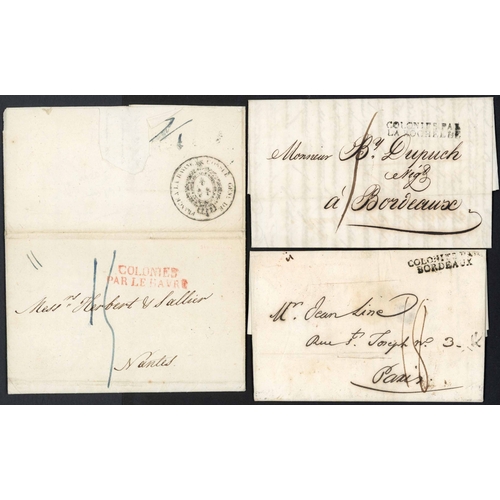 COLONIES
PAR LE HAVRE
Mess.rs Herbert & Sallier
Nantes
COLONIES PAR
LA ROCHELLE
Monsieur By Dupuch
Negt
à Bordeaux
COLONIES PAR
BORDEAUX
Mr. Jean Liné
Rue St. Joseph No. 3
Paris